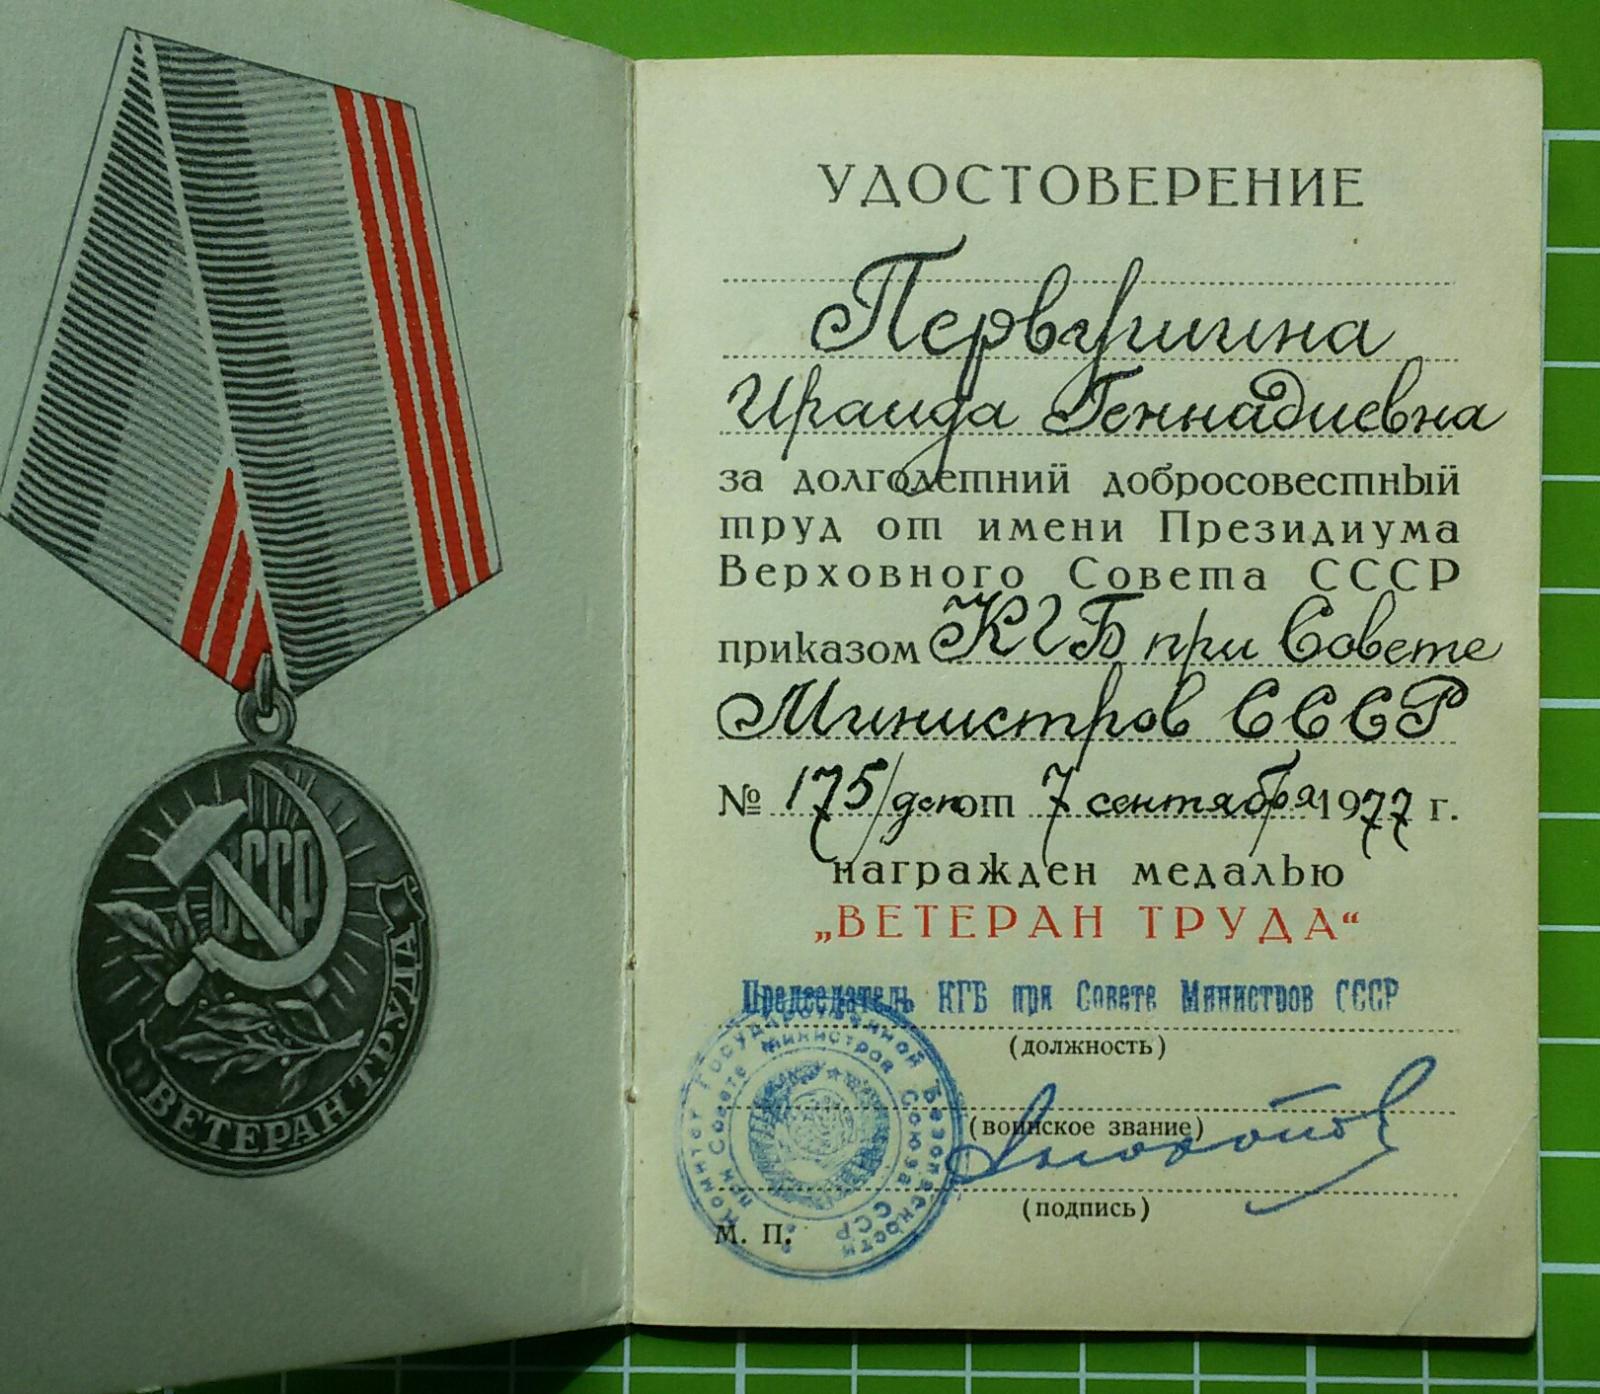 СССР
ВЕТЕРАН ТРУДА
УДОСТОВЕРЕНИЕ
Первушина
Ираида Геннадиевна
за долголетний добросовестный
труд от имени Президиума
Верховного Совета СССР
приказом КГБ при Совете
Министров СССР
№ 175/деп от 7 сентября 1977 г.
награжден медалью
„ВЕТЕРАН ТРУДА“
Председатель КГБ при Совете Министров СССР
(должность)
(воинское звание)
(подпись)
М. П.
Комитет Государственной Безопасности
при Совете Министров Союза ССР